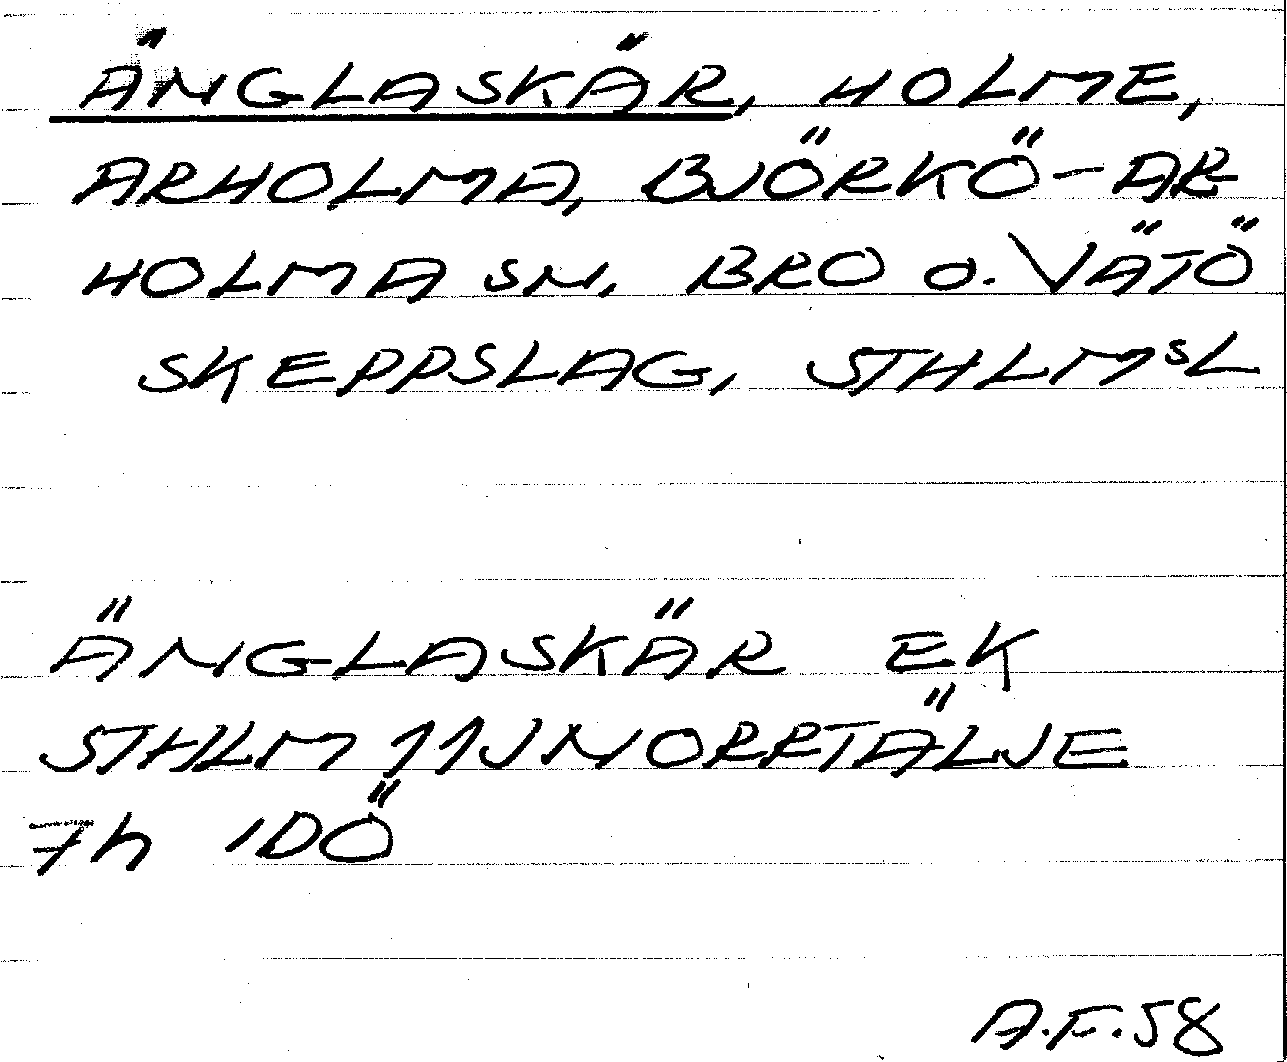 ÄNGLASKÄR, HOLME,
ARHOLMA, BJÖRKÖ-AR
HOLMA SN, BRO O. VÄTÖ
SKEPPSLAG, STHLMSL
ÄNGLASKÄR EK
STHLM 11J NORRTÄLJE
7h IDÖ
A.F.58